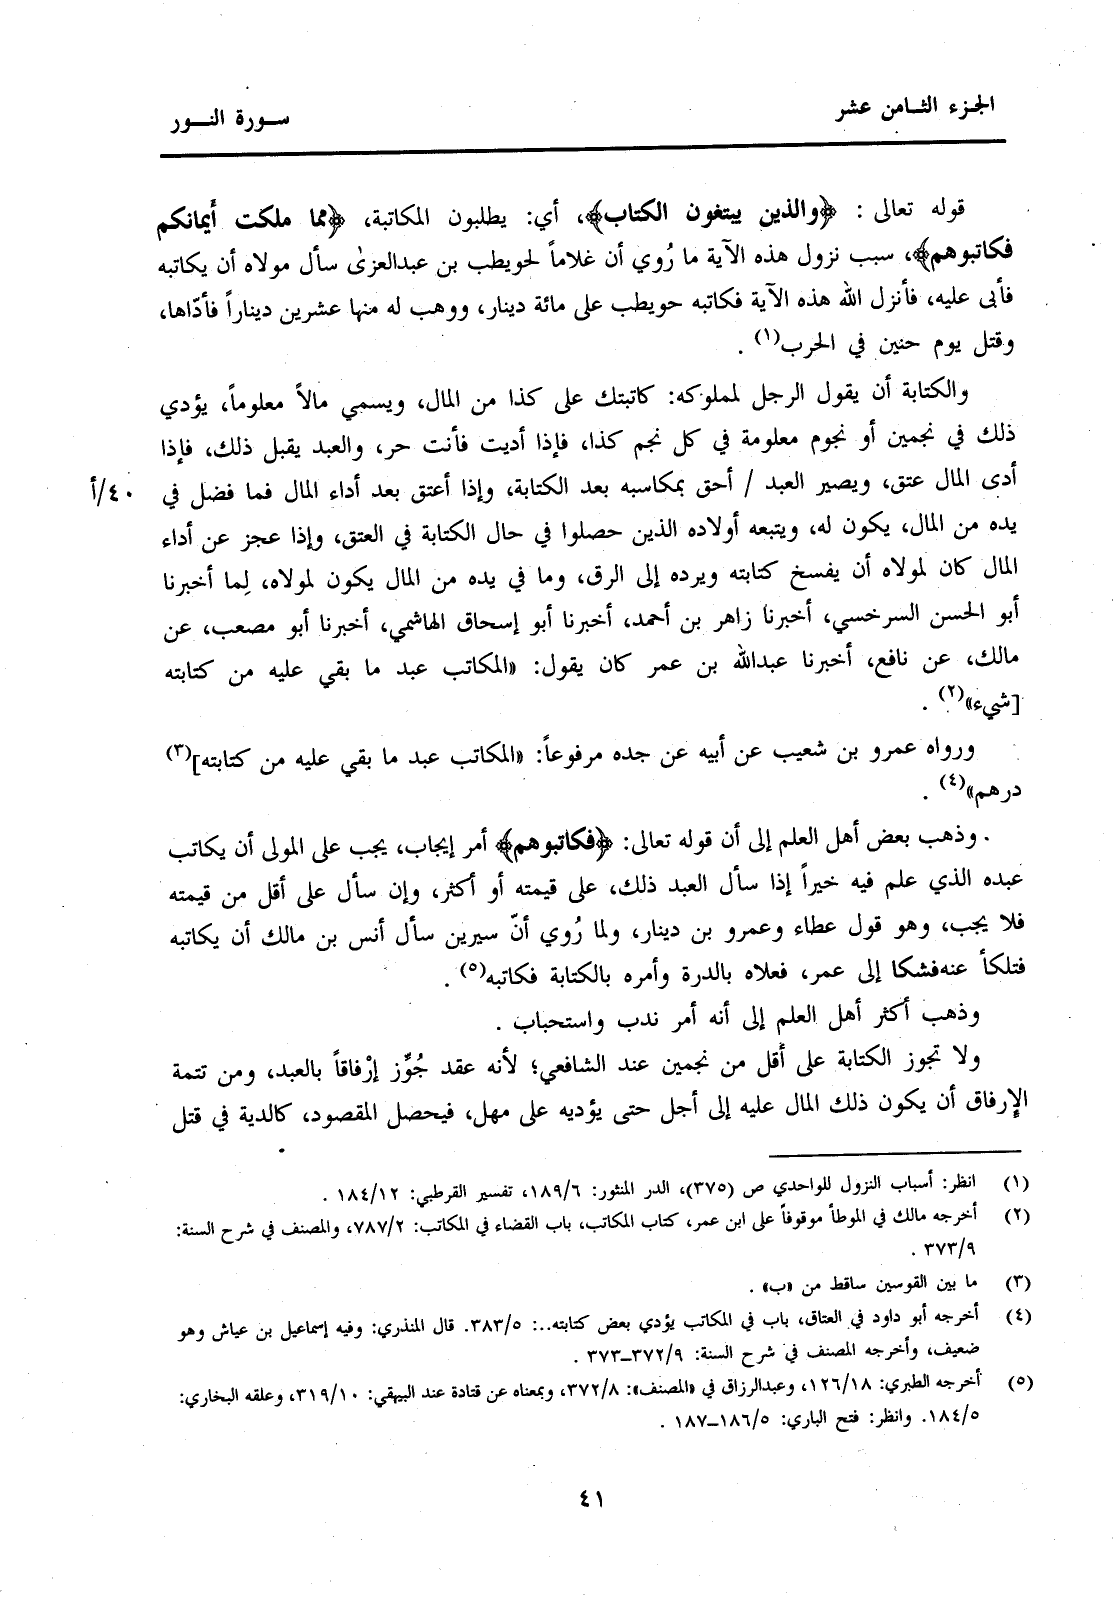 الجزء الثـامن عشر
سـورة النـور
قوله تعالى : ﴿والذين يبتغون الكتاب﴾، أي: يطلبون المكاتبة، ﴿مما ملكت أَيمانكم
فكاتبوهم﴾، سبب نزول هذه الآية ما رُوي أن غلاماً لحويطب بن عبدالعزىٰ سأل مولاه أن يكاتبه
فأبى عليه، فأنزل الله هذه الآية فكاتبه حويطب على مائة دينار، ووهب له منها عشرين ديناراً فأدّاها،
وقتل يوم حنين في الحرب(١) .
والكتابة أن يقول الرجل لمملوكه: كاتبتك على كذا من المال، ويسمي مالاً معلوماً، يؤدي
ذلك في نجمين أو نجوم معلومة في كل نجم كذا، فإذا أديت فأنت حر، والعبد يقبل ذلك، فإذا
أدى المال عتق، ويصير العبد / أحق بمكاسبه بعد الكتابة، وإذا أعتق بعد أداء المال فما فضل في
٤٠/أ
يده من المال، يكون له، ويتبعه أولاده الذين حصلوا في حال الكتابة في العتق، وإذا عجز عن أداء
المال كان لمولاه أن يفسخ كتابته ويرده إلى الرق، وما في يده من المال يكون لمولاه، لِما أخبرنا
أبو الحسن السرخسي، أخبرنا زاهر بن أحمد، أخبرنا أبو إسحاق الهاشمي، أخبرنا أبو مصعب، عن
مالك، عن نافع، أخبرنا عبدالله بن عمر كان يقول: «المكاتب عبد ما بقي عليه من كتابته
[شيء»(٢) .
ورواه عمرو بن شعيب عن أبيه عن جده مرفوعاً: «المكاتب عبد ما بقي عليه من كتابته](٣)
درهم»(٤) .
وذهب بعض أهل العلم إلى أن قوله تعالى: ﴿فكاتبوهم﴾ أمر إيجاب، يجب على المولى أن يكاتب
عبده الذي علم فيه خيراً إذا سأل العبد ذلك، على قيمته أو أكثر، وإن سأل على أقل من قيمته
فلا يجب، وهو قول عطاء وعمرو بن دينار، ولما رُوي أنّ سيرين سأل أنس بن مالك أن يكاتبه
فتلكأ عنه فشكا إلى عمر، فعلاه بالدرة وأمره بالكتابة فكاتبه(٥) .
وذهب أكثر أهل العلم إلى أنه أمر ندب واستحباب .
ولا تجوز الكتابة على أقل من نجمين عند الشافعي؛ لأنه عقد جُوِّز إرْفاقاً بالعبد، ومن تتمة
الإرفاق أن يكون ذلك المال عليه إلى أجل حتى يؤديه على مهل، فيحصل المقصود، كالدية في قتل
(١) انظر: أسباب النزول للواحدي ص (٣٧٥)، الدر المنثور: ١٨٩/٦، تفسير القرطبي: ١٨٤/١٢ .
(٢) أخرجه مالك في الموطأ موقوفاً على ابن عمر، كتاب المكاتب، باب القضاء في المكاتب: ٧٨٧/٢، والمصنف في شرح السنة:
٣٧٣/٩ .
(٣) ما بين القوسين ساقط من «ب» .
(٤) أخرجه أبو داود في العتاق، باب في المكاتب يؤدي بعض كتابته..: ٣٨٣/٥. قال المنذري: وفيه إسماعيل بن عياش وهو
ضعيف، وأخرجه المصنف في شرح السنة: ٣٧٢/٩_٣٧٣ .
(٥) أخرجه الطبري: ١٢٦/١٨، وعبدالرزاق في «المصنف»: ٣٧٢/٨، وبمعناه عن قتادة عند البيهقي: ٣١٩/١٠، وعلقه البخاري:
١٨٤/٥. وانظر: فتح الباري: ١٨٦/٥_١٨٧ .
٤١